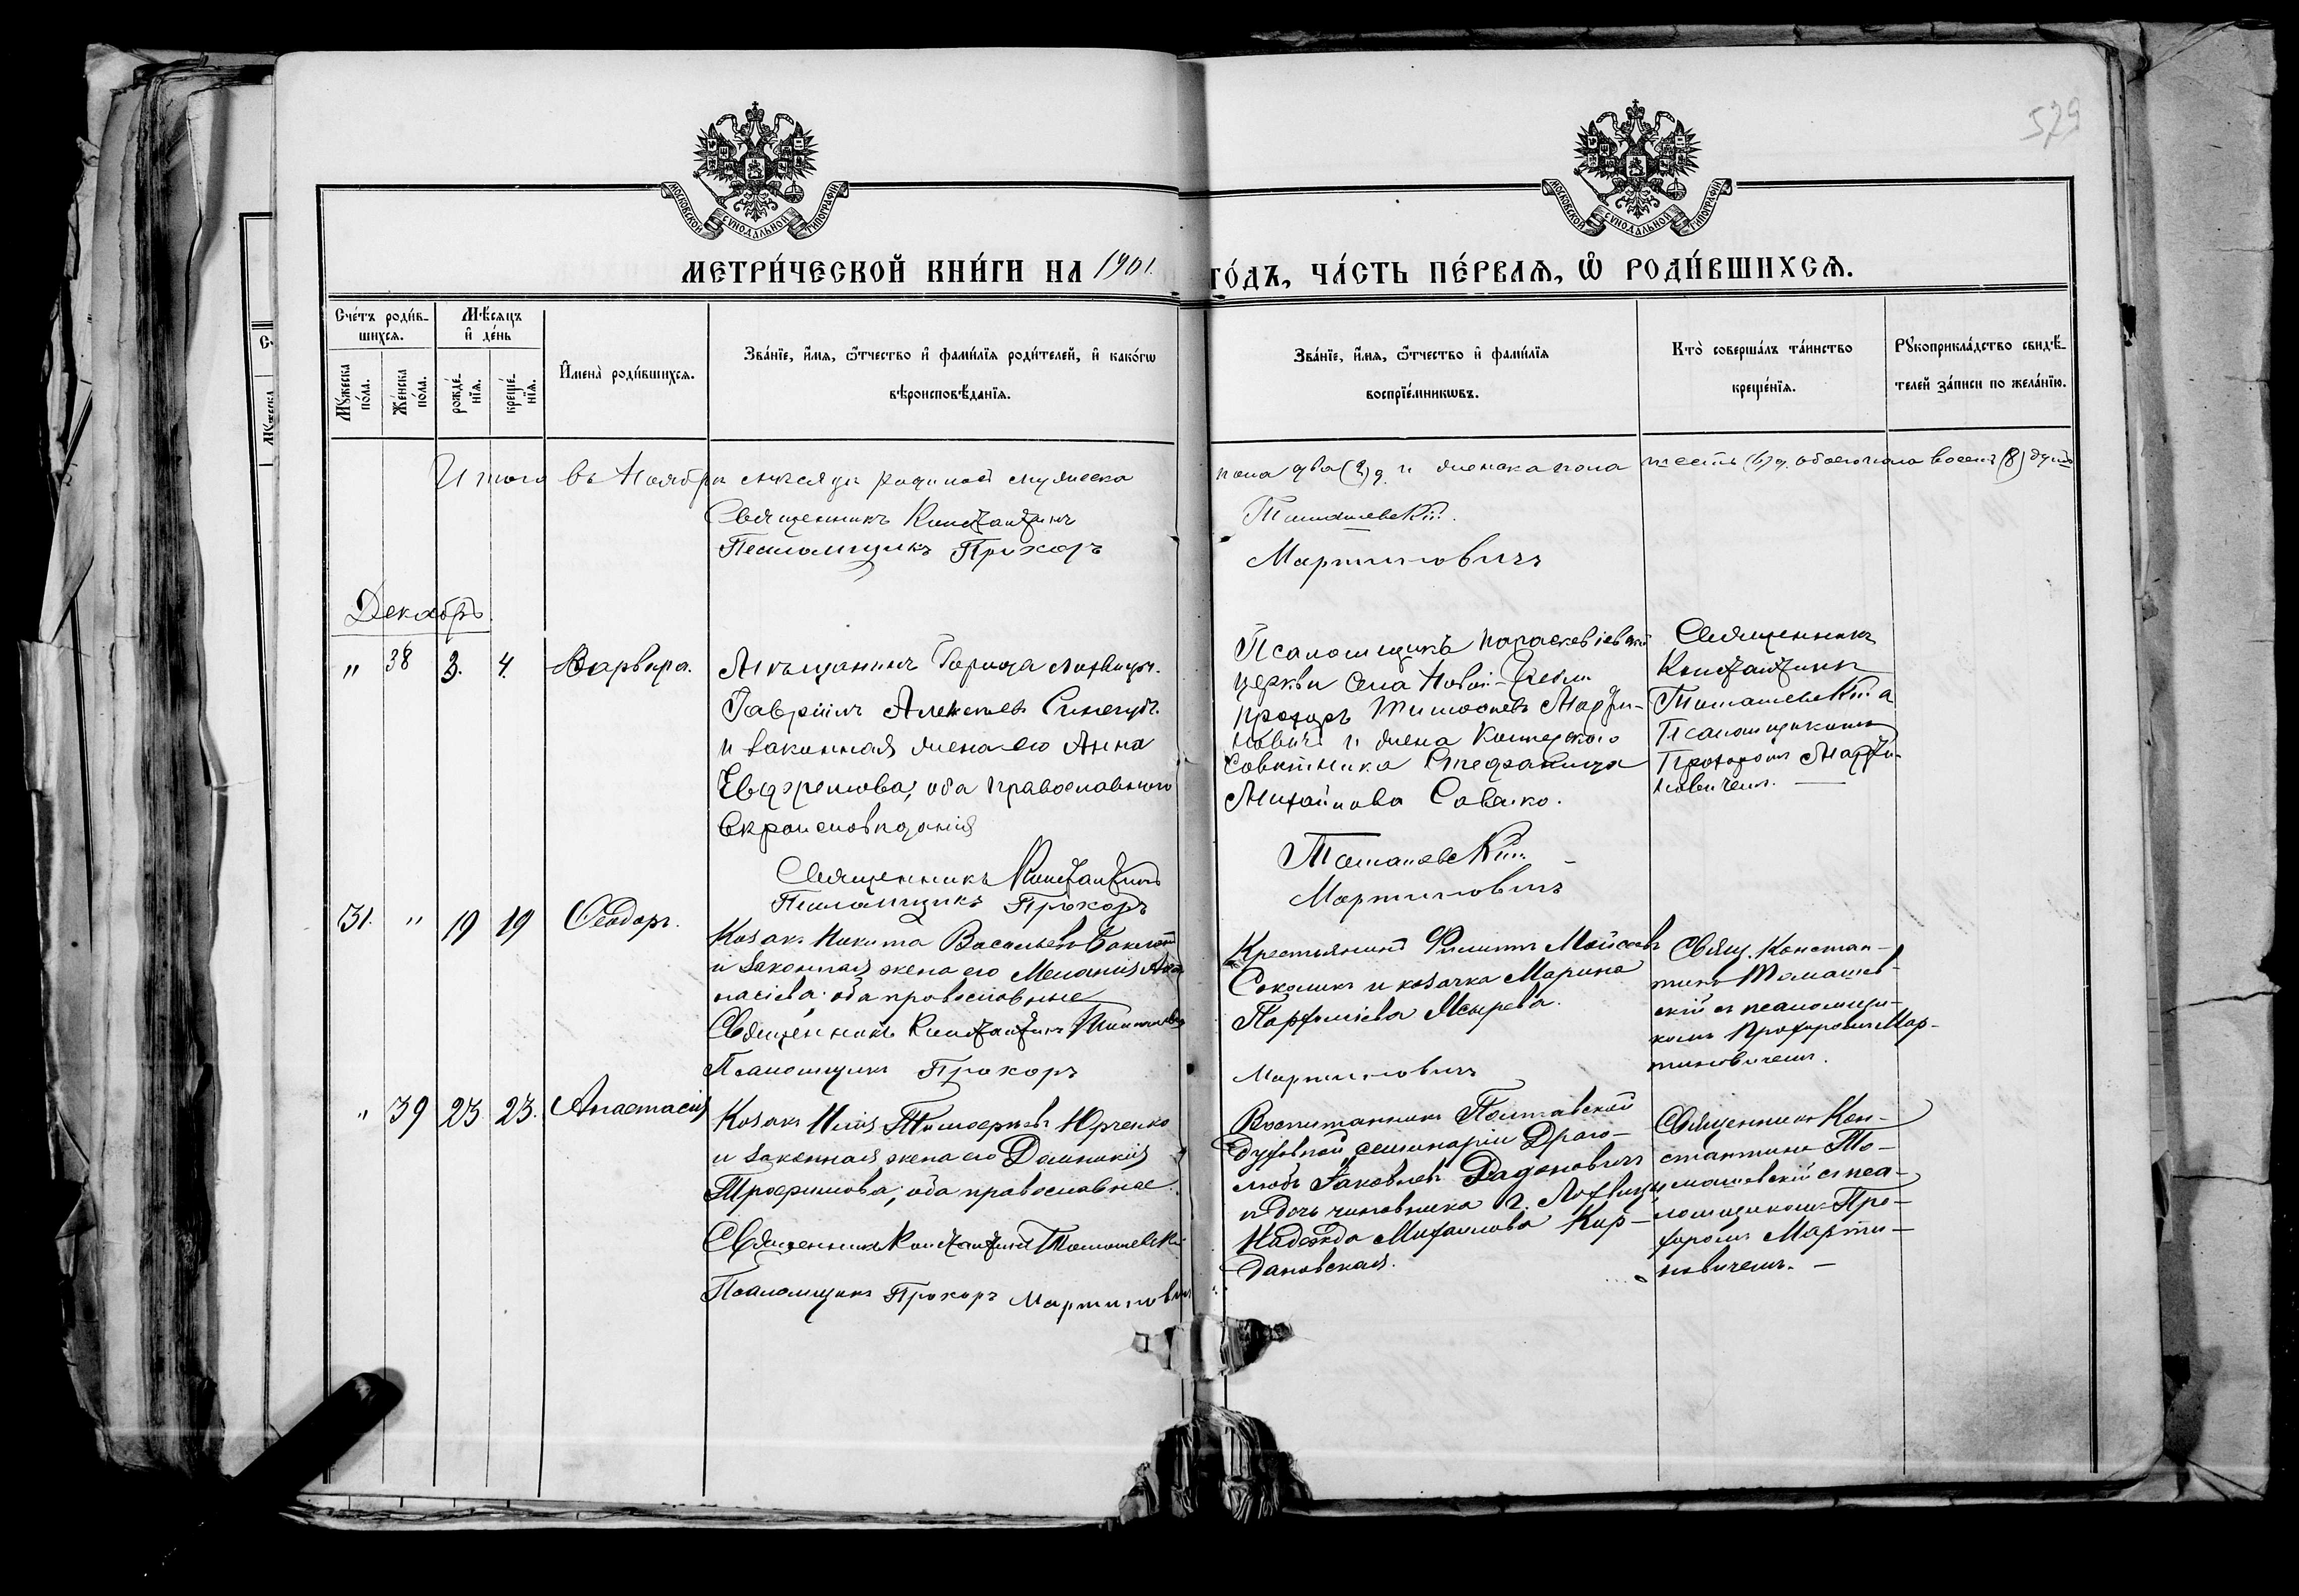 579
МОСКОВСКОЙ СѴНОДАЛЬНОЙ ТИПОГРАФІИ
МОСКОВСКОЙ СѴНОДАЛЬНОЙ ТИПОГРАФІИ
МЕТРИ́ЧЕСКОЙ КНИ́ГИ НА 1901 ГО́ДЪ, ЧА́СТЬ ПЕ́РВАѦ, Ѽ РОДИ́ВШИХСѦ.
Сче́тъ роди́в-
шихсѧ.
Мꙋ́жеска по́ла.
Же́нска по́ла.
Мѣ́сѧцъ и҆ де́нь
рожде́-нїѧ.
креще́-нїѧ.
И҆мена̀ роди́вшихсѧ.
Зва́нїе, и҆́мѧ, ѻ҆́тчество и҆ фами́лїѧ роди́телей, и҆ како́гѡ
вѣроисповѣ́данїѧ.
Зва́нїе, и҆́мѧ, ѻ҆́тчество и҆ фами́лїѧ
воспрїе́мникѡвъ.
Кто̀ соверша́лъ та́инство
креще́нїѧ.
Рꙋкоприкла́дство свидѣ́-
телей за́писи по жела́нїю.
Итого въ Ноябрѣ мѣсяцѣ родилось мужеска пола два (2) д. и женска пола шесть (6) д. обоего пола восемь (8) душъ
Священникъ Константинъ Томашевскій.
Псаломщикъ Прохоръ Мартиновичъ
Декабрь.
" 38 3. 4. Варвара.
Мѣщанинъ Города Лохвицы.
Гавріилъ Алексѣевъ
и законная жена его Анна
Евфремова, оба православнаго
вѣроисповѣданія
Псаломщикъ Параскевіевской
церкви села Новой-
Прохоръ Тимофеевъ Марти-
новичъ и жена
Совѣтника Стефанида
Михайлова
Священникъ
Константинъ
Томашевскій съ
Псаломщикомъ
Прохоромъ Марти-
новичемъ. —
Священникъ Константинъ Томашевскій
Псаломщикъ Прохоръ Мартиновичъ
31. " 19 19 Ѳеодоръ.
Козакъ Никита Васильевъ
и законная жена его Меланія Аѳа-
насіева оба православные
Крестьянинъ Филиппъ Мойсеевъ
и козачка Марина
Парѳеніева
Свящ. Констан-
тинъ Томашев-
скій съ псаломщи-
комъ Прохоромъ Мар-
тиновичемъ.
Священникъ Константинъ Томашевскій
Псаломщикъ Прохоръ Мартиновичъ
" 39 23 23. Анастасія
Козакъ Илія Тимоѳеевъ Юрченко
и законная жена его Домникія
Трофимова, оба православные.
Воспитанникъ Полтавской
духовной семинаріи Драго-
любъ Іаковлевъ Радоновичъ
и дочь чиновника г. Лохвицы
Надежда Михайлова Кир-
дановская.
Священникъ Кон-
стантинъ То-
машевскій съ пса-
ломщикомъ Про-
хоромъ Марти-
новичемъ. —
Священникъ Константинъ Томашевскій
Псаломщикъ Прохоръ Мартиновичъ